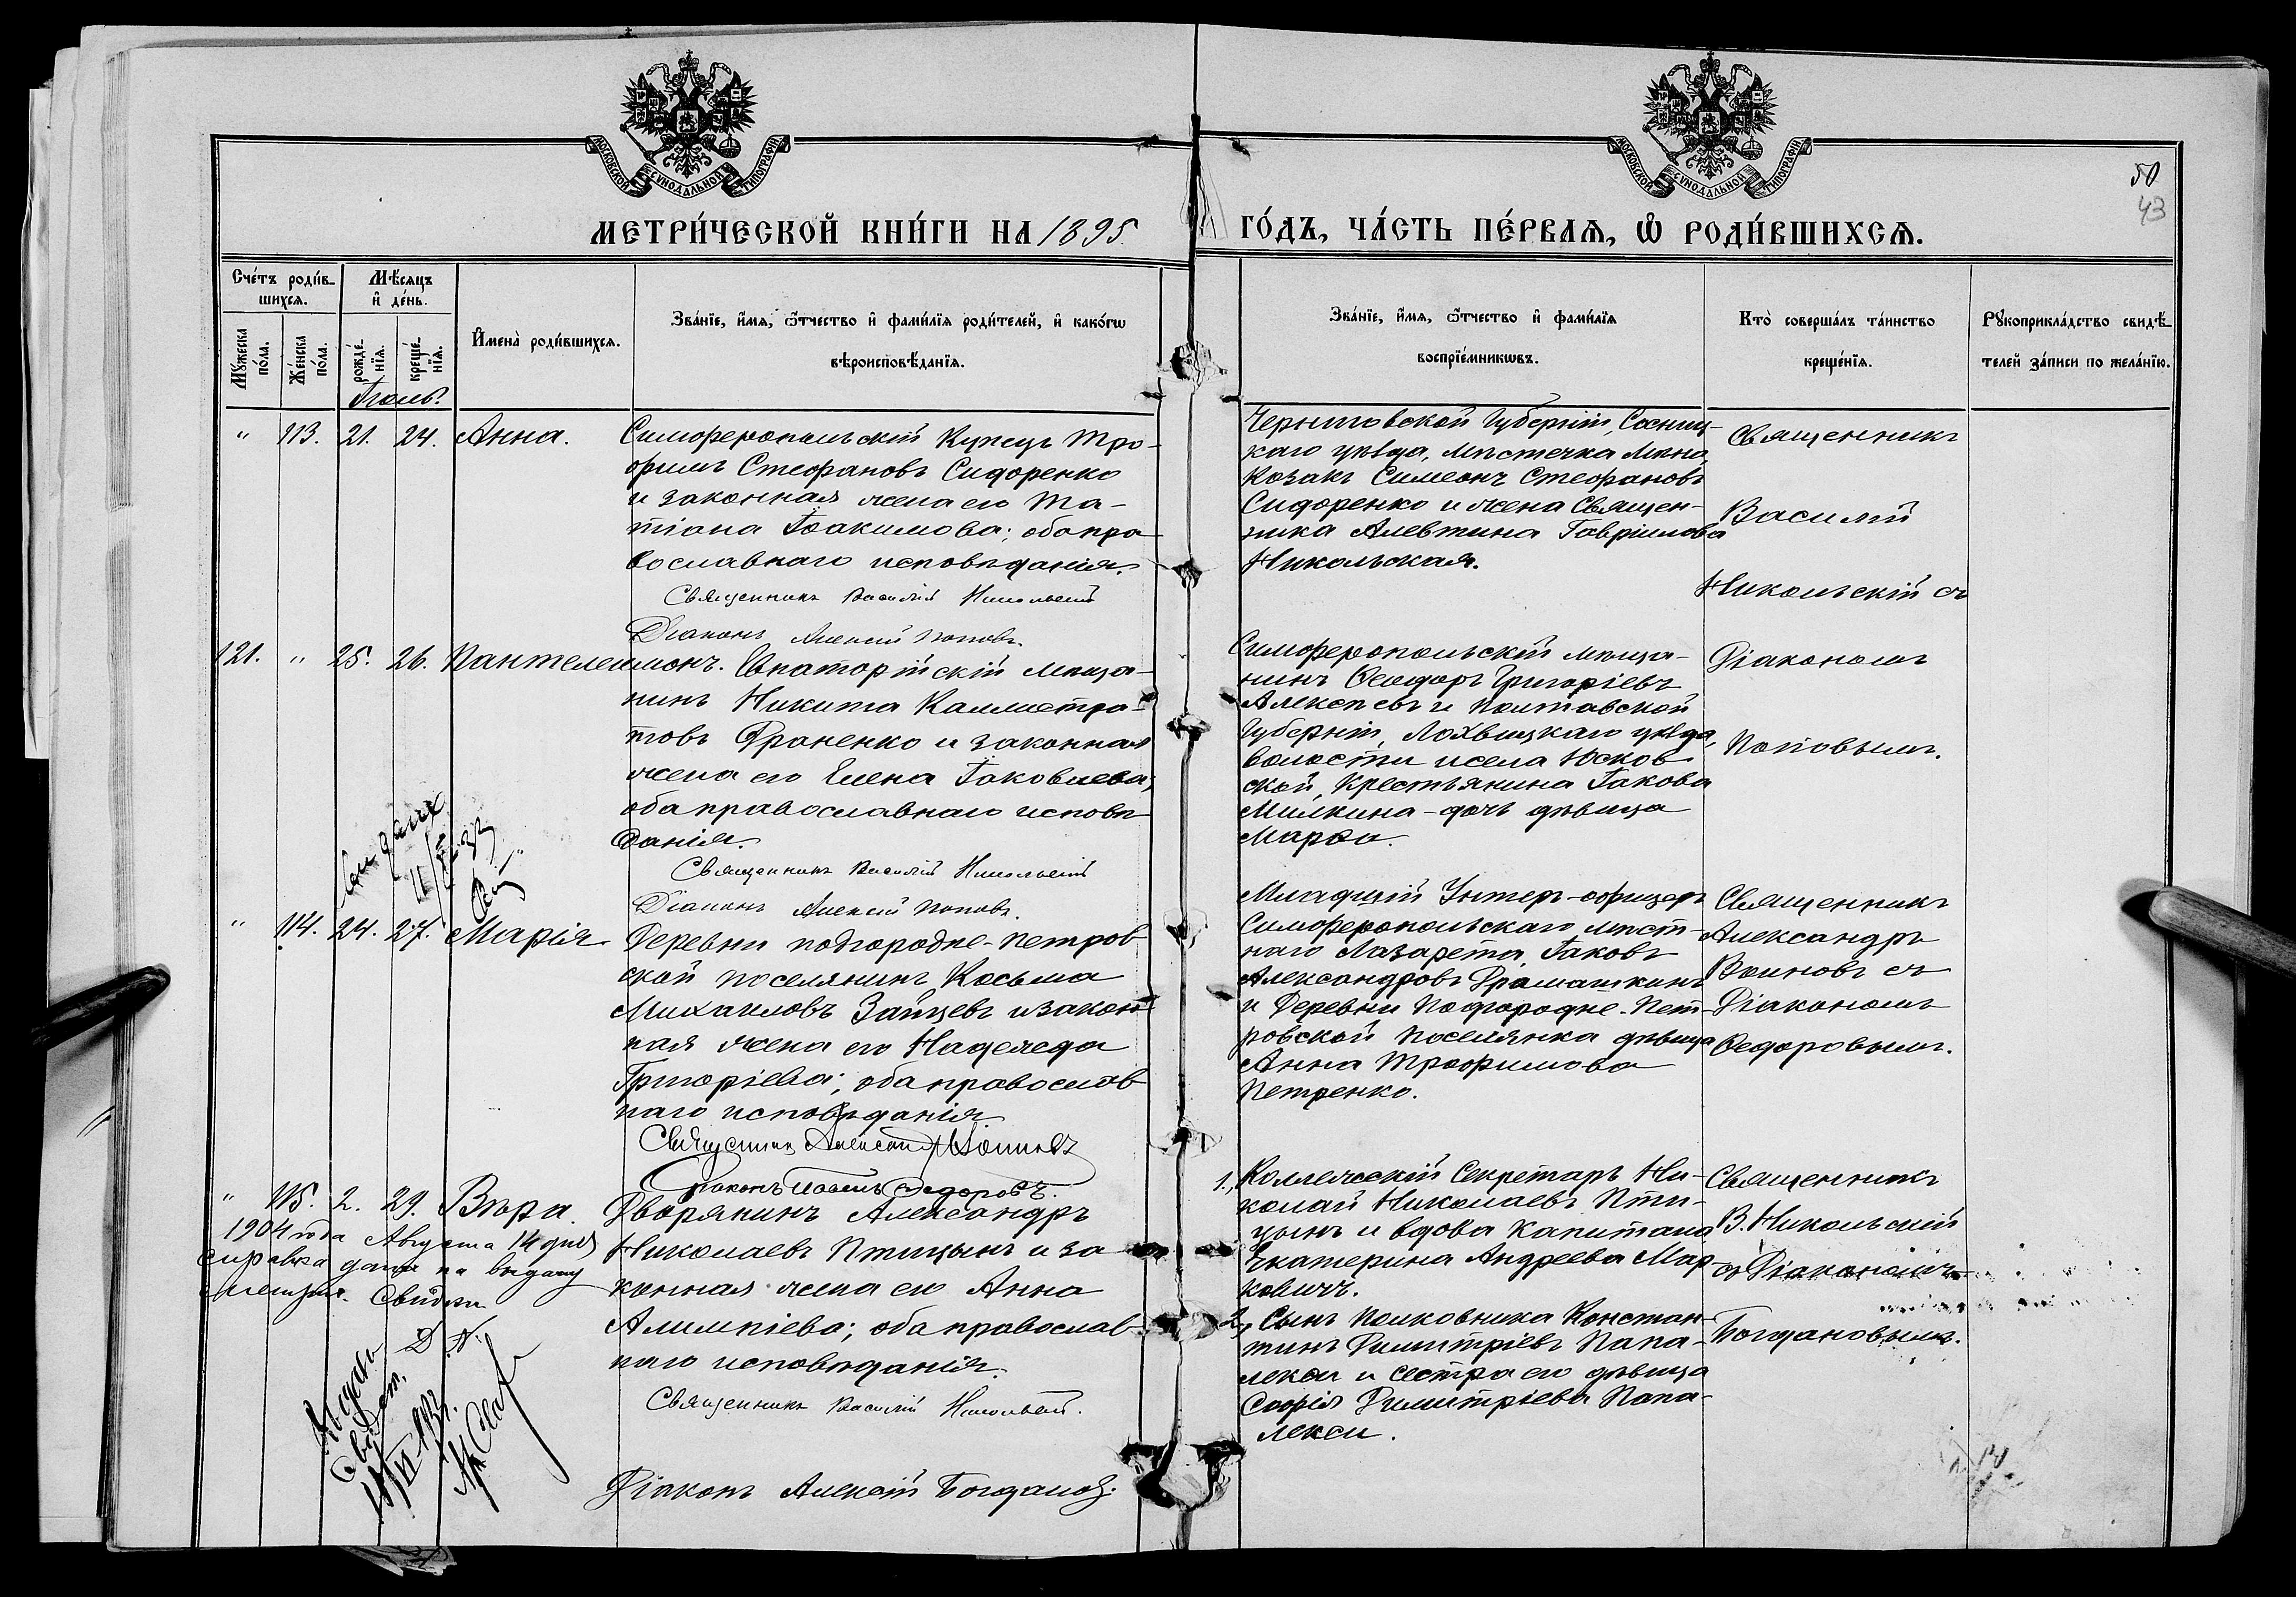 МОСКОВСКОЙ СѴНОДАЛЬНОЙ ТИПОГРАФІИ
МОСКОВСКОЙ СѴНОДАЛЬНОЙ ТИПОГРАФІИ
50
43
МЕТРИ́ЧЕСКОЙ КНИ́ГИ НА 1895 ГО́ДЪ, ЧА́СТЬ ПЕ́РВАЯ, Ѡ РОДИ́ВШИХСЯ.
Сче́тъ роди́в-
шихся.
Мꙋ́жеска по́ла.
Же́нска по́ла.
Мѣ́сяцъ и҆ де́нь.
рожде́нїя.
креще́нїя.
И҆мена̀ роди́вшихся.
Зва́нїе, и҆́мя, ѻ҆́тчество и҆ фами́лїя роди́телей, и҆ како́гѡ
вѣроисповѣ́данїя.
Зва́нїе, и҆́мя, ѻ҆́тчество и҆ фами́лїя
воспрїе́мникѡвъ.
Кто̀ соверша́лъ та́инство
креще́нїя.
Рꙋкоприкла́дство свидѣ́-
телей за́писи по жела́нїю.
Іюль.
" 113. 21. 24. Анна.
Симферопольскій Купецъ Тро-
фимъ Стефановъ Сидоренко
и законная жена его Та-
тіана Іоакимова; оба пра
вославнаго исповѣданія.
Священникъ Василій Никольскій
Діаконъ Алексій Поповъ.
Черниговской Губерніи, Сосниц-
каго уѣзда, мѣстечка Мена
Козакъ Симеонъ Стефановъ
Сидоренко и жена Священ-
ника Алевтина Гавріилова
Никольская.
Священникъ
Василій
Никольскій съ
Діакономъ
Поповымъ.
121. " 25. 26. Пантелеимонъ.
Евпаторійскій мѣща-
нинъ Никита Каллистра-
товъ Фраменко и законная
жена его Елена Іаковлева;
оба православнаго исповѣ
данія.
Священникъ Василій Никольскій
Діаконъ Алексій Поповъ.
Симферопольскій мѣща-
нинъ Ѳеодоръ Григоріевъ
Алексѣевъ и Полтавской
Губерніи, Лохвицкаго уѣзда,
волости и села Юсков-
ской, Крестьянина Іакова
Милкина - дочь дѣвица
Марѳа.
" 114. 24. 27. Марія
Деревни подгородне-петров
ской поселянинъ Косьма
Михаиловъ Зайцевъ и закон
ная жена его Надежда
Григоріева; оба православ
наго исповѣданія.
Священник Александръ Воиновъ
Діаконъ Павелъ Федоровъ.
Младшій Унтеръ-офицеръ
Симферопольскаго мѣст-
наго Лазарета, Іаковъ
Александровъ
и Деревни Подгородне-Пет-
ровской поселянка дѣвица
Анна Трофимова
Петренко.
Священникъ
Александръ
Воиновъ съ
Діакономъ
Федоровымъ.
" 115. 2. 29. Вѣра.
Дворянинъ Александръ
Николаевъ Птицынъ и за
конная жена его Анна
Алимпіева; оба православ-
наго исповѣданія.
Священникъ Василій Никольскій.
Діаконъ Алексій Богдановъ.
1904 года Августа 14 дня
справка дана на выдачу
метрич. Свидѣт.
1., Коллежскій Секретарь Ни-
колай Николаевъ Пти-
цынъ и вдова Капитана
Екатерина Андреева Мар-
ковичъ.
2, Сынъ полковника Констан-
тинъ Димитріевъ Папа-
лекси и сестра его дѣвица
Софія Димитріева Папа-
лекси.
Священникъ
В. Никольскій
съ Діакономъ
Богдановымъ.